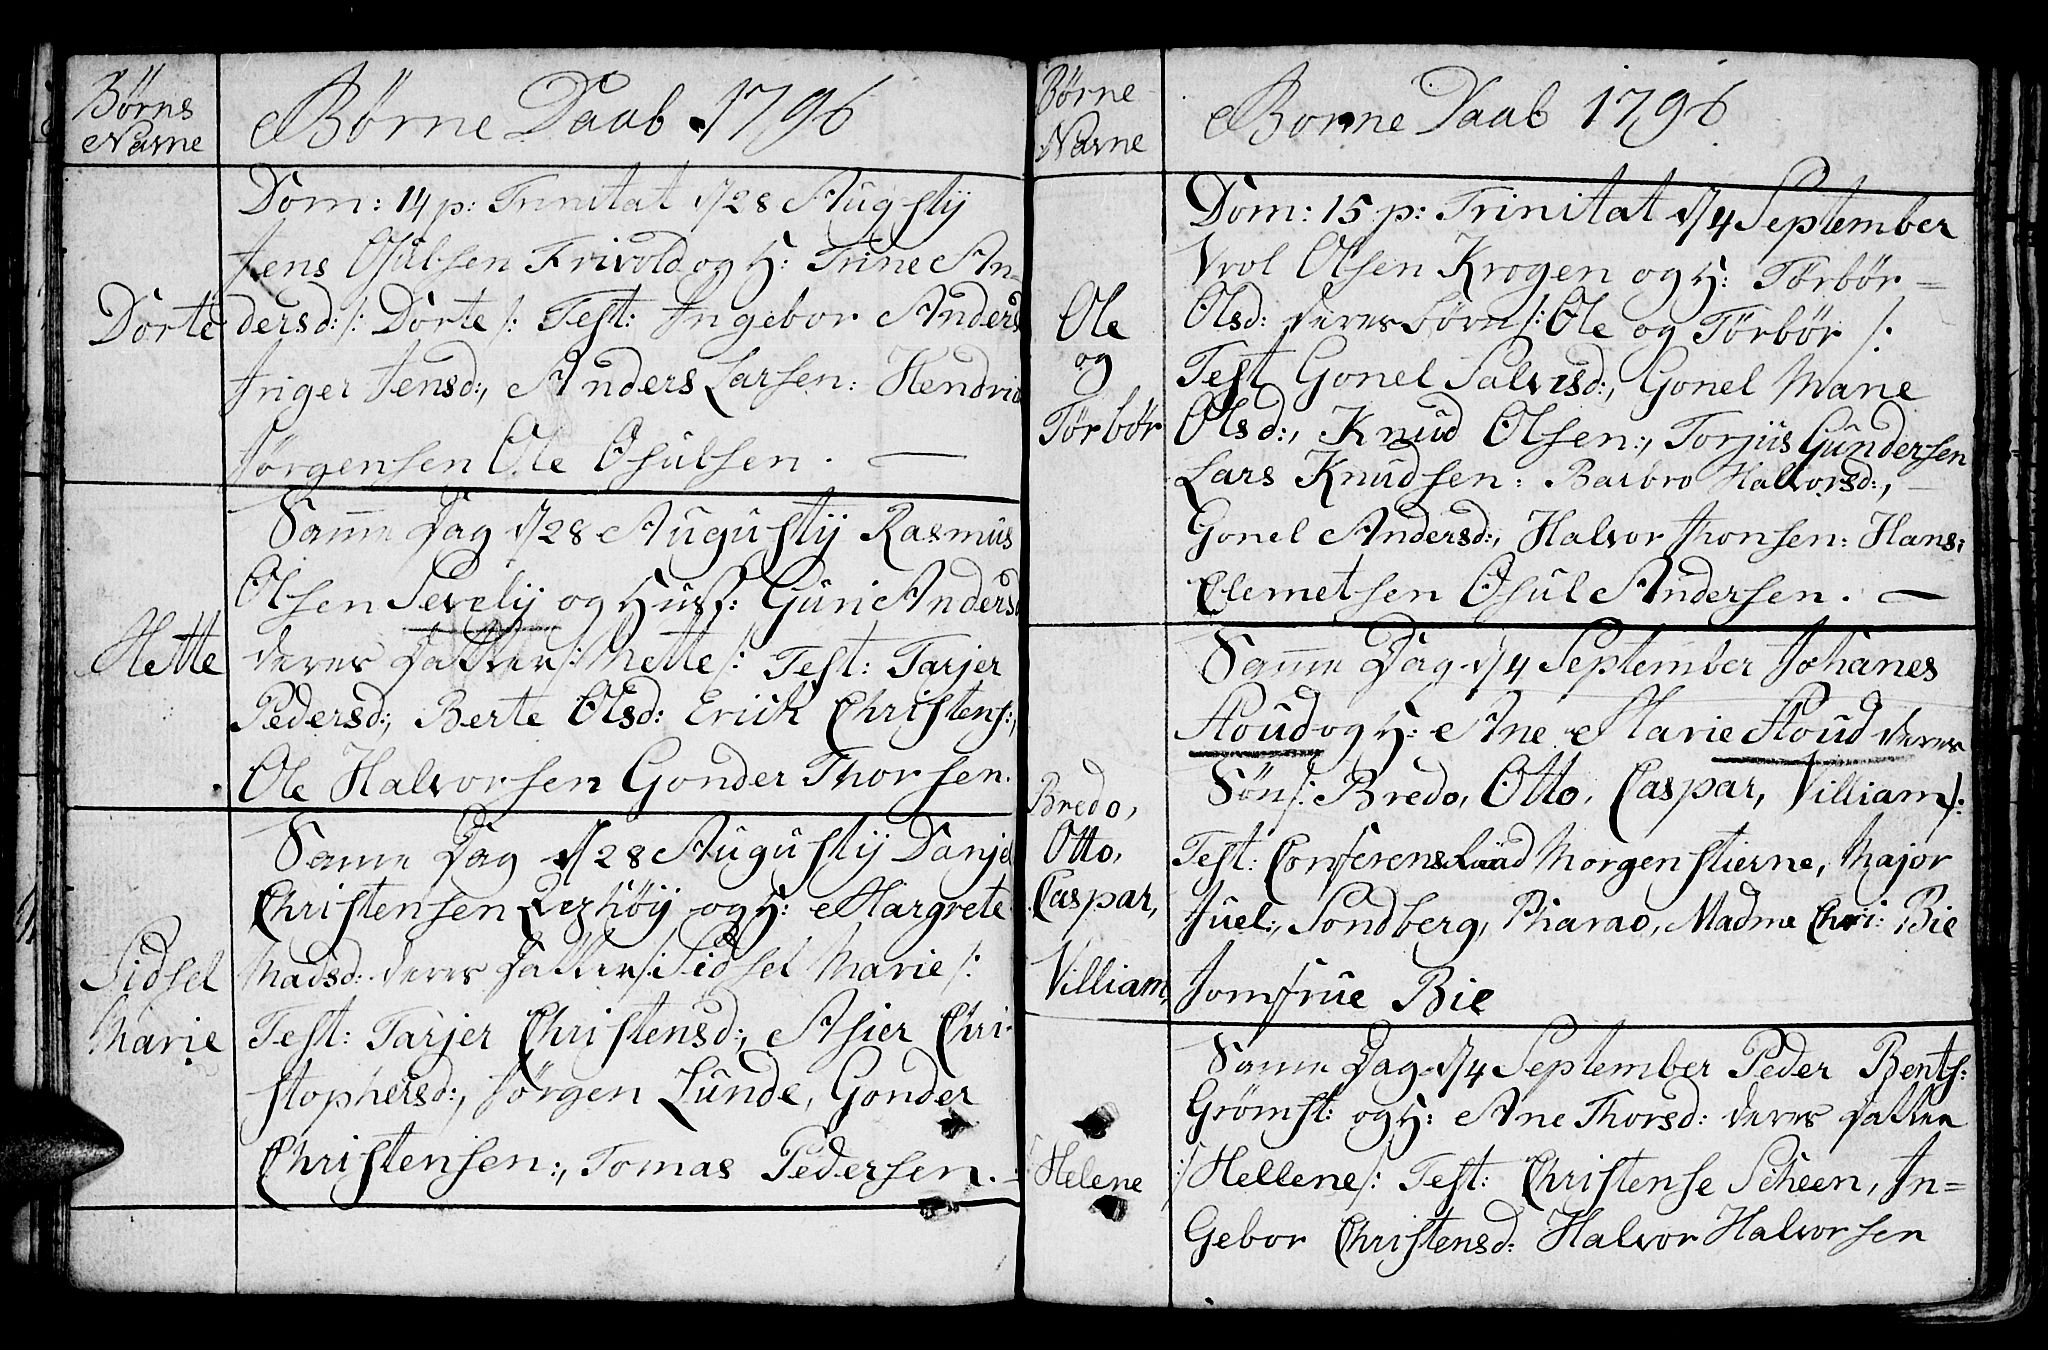 Børns
Navne
Børne Daab 1796
Dom: 14 p: Trinitat d/28 Augustij
Jens Osulsen Frivold og H: Trine An-
Dorte
dersd: /: Dorte /: Test: Ingebor Anders
Inger Jensd:, Anders Larsen: Hendric
Jørgensen Ole Osulsen. —
Samme Dag d/28 Augustij Rasmus
Olsen Sevelij og Hust: Guri Andersd
Mette
deres Datter /: Mette /: Test: Tarjer
Pedersd:, Berte Olsd: Erich Christens:,
Ole Halvorsen Gonder Thorsen.
Samme Dag d/28 Augustij Danjel
Christensen og H: Margrete
Sidsel
Marie
Madsd: deres Datter /: Sidsel Marie /:
Test: Tarjer Christensd:, Asier Chri-
stophersd:, Jørgen Lunde, Gonder
Christensen:, Tomas Pedersen. =
Børne
Navne
Børne Daab 1796
Dom: 15 p: Trinitat d/4 September
Vrol Olsen Krogen og H: Tørbør =
Ole
og
Tørbør
Olsd: deres Børn /: Ole og Tørbør /:
Test Gonel Salvesd:, Gonel Marie
Olsd:, Knud Olsen:, Torjus Gundersen
Lars Knudsen: Barbro Halvorsd:, —
Gonel Andersd:, Halvor Thonsen: Hans:
Clemetsen Osul Andersen. —
Samme Dag d/4 September Johanes
Stoud og H: Ane Marie Stoud deres
Bredo,
Otto,
Caspar,
Villiam,
Søn /: Bredo, Otto, Caspar, Villiam /:
Test: Conferensraad Morgenstierne, Major
Juel:, Sondberg, Pharao, Madme Chri: Bie
Jomfrue Bie
Samme Dag d/4 September Peder Bents:
Grømst: og H: Ane Thorsd: deres Datter
Helene
/: Hellene /: Test: Christense Scheen, In=
Gebor Christensd: Halvor Halvorsen